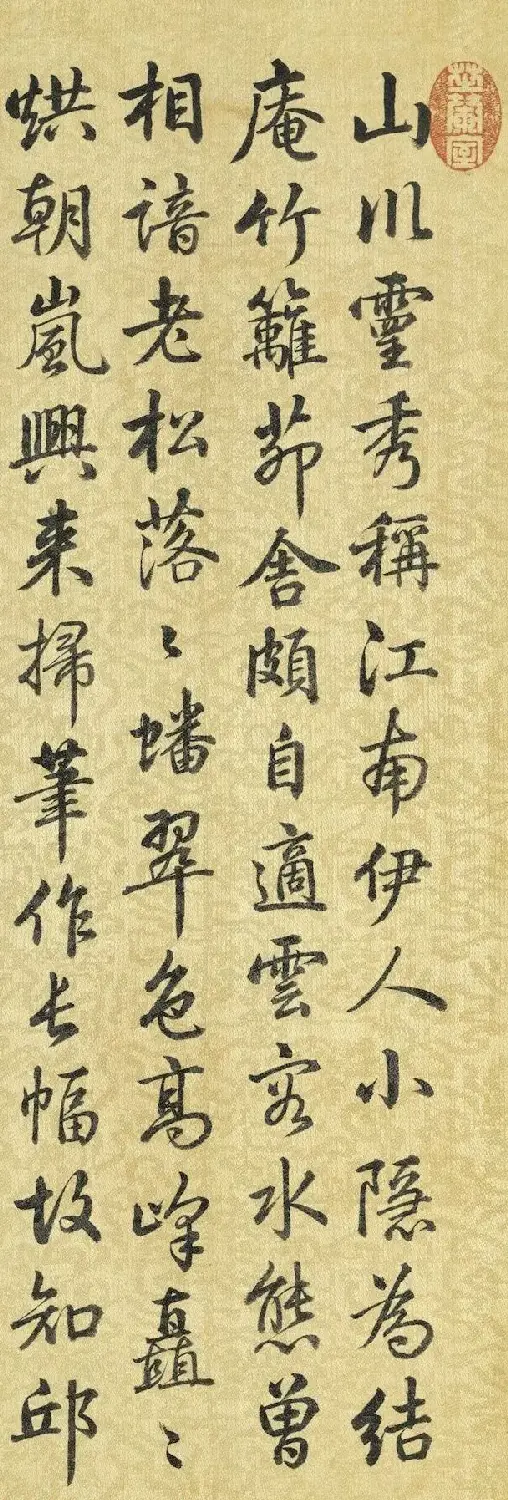 山川靈秀稱江南伊人小隱為結
庵竹籬茆舍頗自適雲容水態曾
相諳老松落〻蟠翠色高峰矗〻
烘朝嵐興来掃筆作長幅故知邱